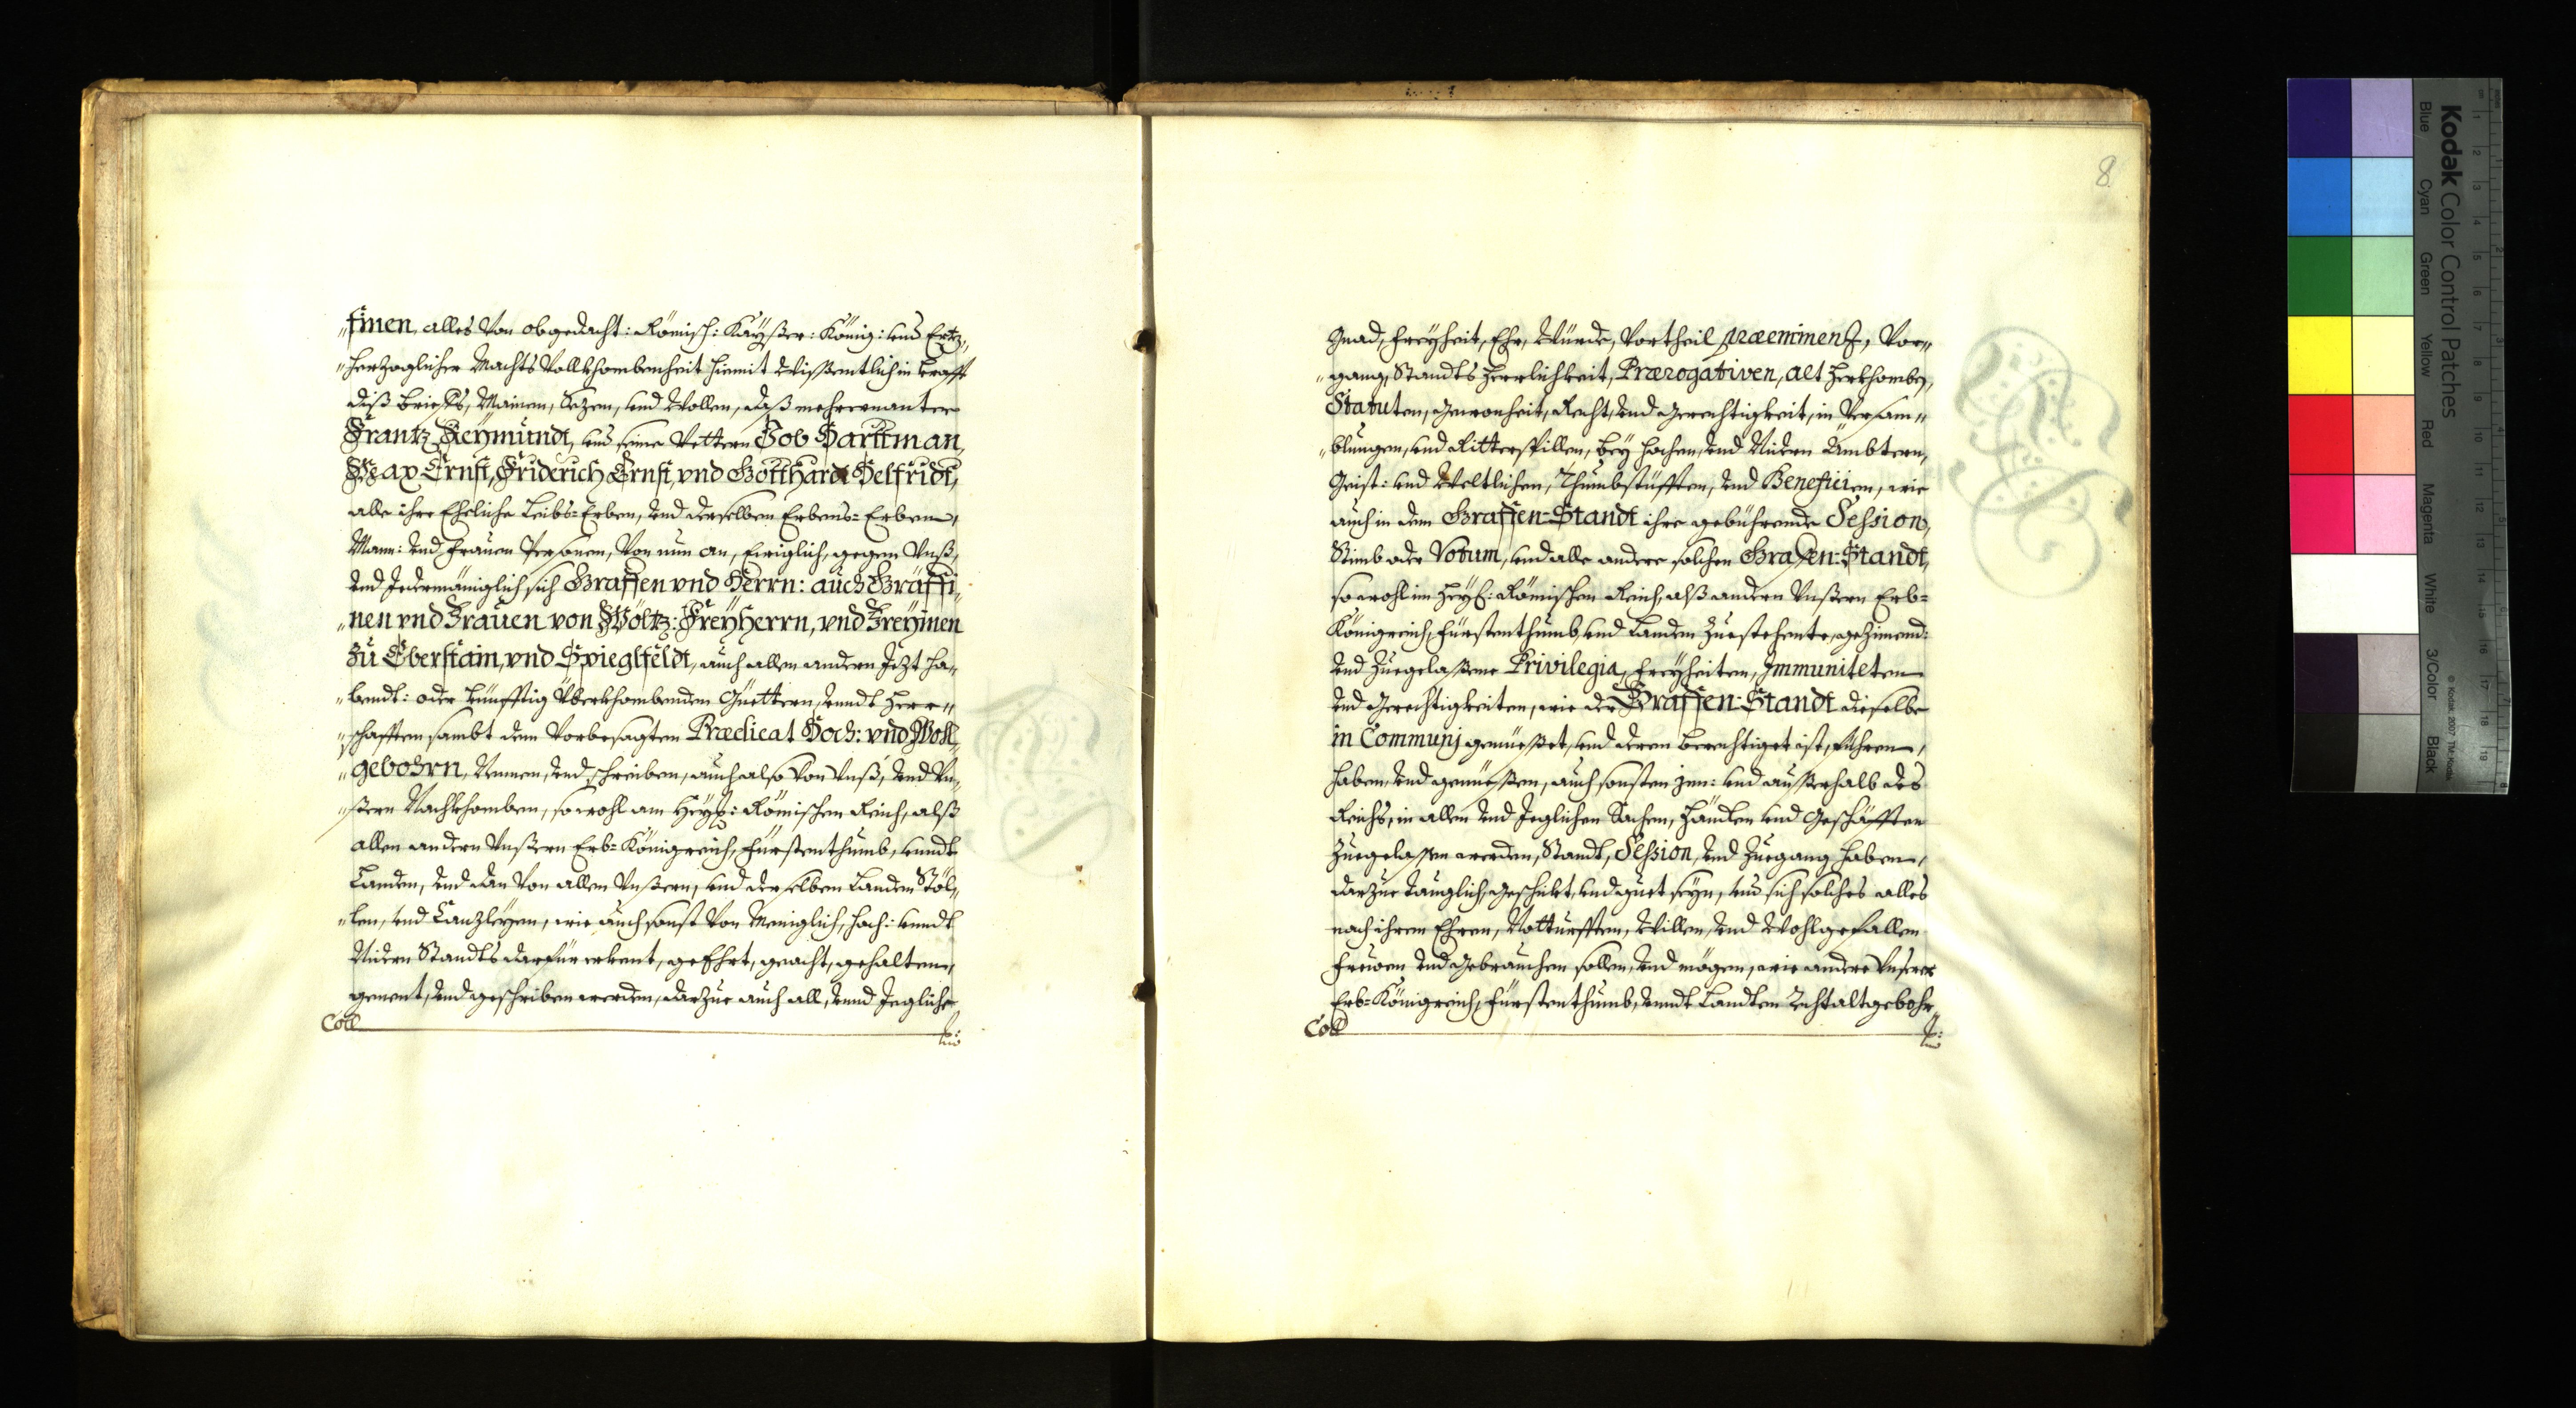 „finen, alles Von obgedacht: Römisch: Kaÿßer: König: vnd Ertz„
„herzoglicher Machts Vollkhombenheit hiemit Wissentlich in krafft
diß brieffs, Mainen, Sezen, vnd Wollen, daß mehrernanter
Frantz Reÿmundt, vnd seine Vettern Job Harttman,
Max Ernst, Friderich Ernst, vnd Gotthard Helfridt,
alle ihre Eheliche Leibs-Erben, vnd derselben Erbens-Erben,
Mann: vnd Frauen Persohnen, Von nun an, Ewiglich, gegen Vnß,
vnd Jedermäniglich sich Graffen vnd Herrn: auch Gräffi„
„nen vnd Frauen von Wöltz: Freÿherrn, vnd Freÿinen
zu Eberstain, vnd Spieglfeldt, auch allen andern Jezt ha„
„bendt: oder künfftig Vberkhombenden Güettern, vnndt Herr„
„schafften sambt dem Vorbesagten Prædicat Hoch: vnd Woll„
„gebohrn, Nennen, vnd schreiben, auch also Von Vnß, vnd Vn„
„ßern Nachkhomben, sowohl am Heÿl: Römischen Reich, alß
allen andern Vnßern Erb-Königreich, Fürstenthumb, vnndt
Landen, vnd dan Von allen Vnßern, vnd derselben Landen Stöl„
„len, vnd Canzleÿen, wie auch sonst Von Meniglich, hoch: vnndt
Nidern Standts darfür erkent, geEhrt, geacht, gehalten,
genent, vnd geschriben werden, darzue auch all, vnnd Jegliche
Coll
8
Gnad, Freÿheit, Ehr, Würde, Vortheil præeminenz, Vor„
„gang, Standts Herrlichkeit, Prærogativen, alt Herkhomben,
Statuten, Gewonheit, Recht, vnd Gerechtigkeit, in Versam„
„blungen, vnd Ritterspillen, beÿ hochen, vnd Nidern Ämbtern,
Geist: vnd Weltlichen, Thumbstüfften, vnd Beneficien, wie
auch in dem Graffen-Standt ihre gebührende Session,
Stimb oder Votum, vnd alle andere solchen Grafen-Standt,
sowohl im Heÿl: Römischen Reich, alß andern Vnßern Erb-
Königreich, Fürstenthumb, vnd Landen Zuestehente, gezimend:
vnd Zuegelaßene Privilegia, Freÿheiten, Immuniteten
vnd Gerechtigkeiten, wie der Graffen-Standt dieselbe
in Communj genüeßet, vnd deren berechtiget ist, führen,
haben, vnd genüeßen, auch sonsten jnn: vnd außerhalb des
Reichs, in allen vnd Jeglichen Sachen, Händlen vnd Geschäfften
Zuegelaßen werden, Standt, Session, vnd Zuegang haben,
darzue tauglich, geschikt, vnd guet seÿn, vnd sich solches alles
nach ihren Ehren, Notturfften, Willen, vnd Wohlgefallen
freüen vnd gebrauchen sollen, vnd mögen, wie andere Vnserer
Erb-Königreich, Fürstenthumb, vnndt Landten Rechtaltgebohr„
Coll
Kodak Color Control Patches
Blue Cyan Green Yellow Red Magenta White 3/Color Black
© Kodak, 2007 TM: Kodak